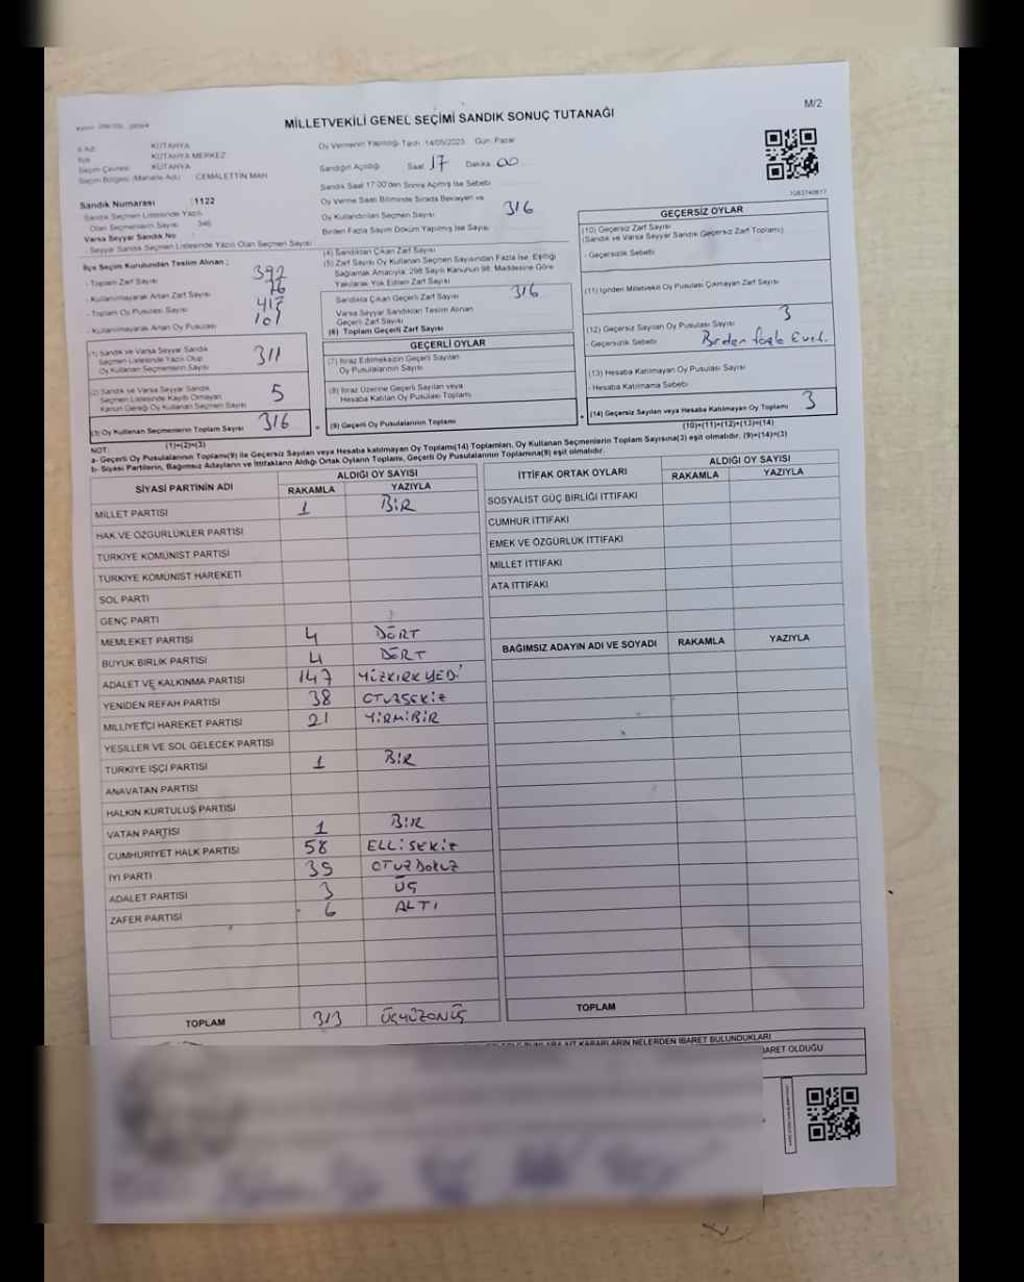 M/2
MİLLETVEKİLİ GENEL SEÇİMİ SANDIK SONUÇ TUTANAĞI
İl Adı: KÜTAHYA
İlçe KÜTAHYA MERKEZ
Seçim Çevresi KÜTAHYA
Seçim Bölgesi (Mahalle Adı) CEMALETTİN MAH
Sandık Numarası : 1122
Sandık Seçmen Listesinde Yazılı
Olan Seçmenlerin Sayısı 346
Varsa Seyyar Sandık No
- Seyyar Sandık Seçmen Listesinde Yazılı Olan Seçmen Sayısı
İlçe Seçim Kurulundan Teslim Alınan ;
- Toplam Zarf Sayısı 392
- Kullanılmayarak Artan Zarf Sayısı 76
- Toplam Oy Pusulası Sayısı 417
- Kullanılmayarak Artan Oy Pusulası 101
(1) Sandık ve Varsa Seyyar Sandık
Seçmen Listesinde Yazılı Olup
Oy Kullanan Seçmenlerin Sayısı 311
(2) Sandık ve Varsa Seyyar Sandık
Seçmen Listesinde Kayıtlı Olmayan
Kanun Gereği Oy Kullanan Seçmen Sayısı 5
(3) Oy Kullanan Seçmenlerin Toplam Sayısı 316
(1)+(2)=(3)
Oy Vermenin Yapıldığı Tarih :14/05/2023 Gün: Pazar
Sandığın Açıldığı Saat 17 Dakika 00
Sandık Saat 17:00'den Sonra Açılmış İse Sebebi
Oy Verme Saati Bitiminde Sırada Bekleyen ve
Oy Kullandırılan Seçmen Sayısı 316
Birden Fazla Sayım Döküm Yapılmış İse Sayısı
(4) Sandıktan Çıkan Zarf Sayısı
(5) Zarf Sayısı Oy Kullanan Seçmen Sayısından Fazla İse; Eşitliği
Sağlamak Amacıyla; 298 Sayılı Kanunun 98. Maddesine Göre
Yakılarak Yok Edilen Zarf Sayısı
Sandıkta Çıkan Geçerli Zarf Sayısı 316
Varsa Seyyar Sandıktan Teslim Alınan
Geçerli Zarf Sayısı
(6) Toplam Geçerli Zarf Sayısı
GEÇERLİ OYLAR
(7) İtiraz Edilmeksizin Geçerli Sayılan
Oy Pusulalarının Sayısı
(8) İtiraz Üzerine Geçerli Sayılan veya
Hesaba Katılan Oy Pusulası Toplamı
(9) Geçerli Oy Pusulalarının Toplamı
GEÇERSİZ OYLAR
(10) Geçersiz Zarf Sayısı
(Sandık ve Varsa Seyyar Sandık Geçersiz Zarf Toplamı)
- Geçersizlik Sebebi
(11) İçinden Milletvekili Oy Pusulası Çıkmayan Zarf Sayısı
(12) Geçersiz Sayılan Oy Pusulası Sayısı 3
- Geçersizlik Sebebi Birden fazla Evet.
(13) Hesaba Katılmayan Oy Pusulası Sayısı
- Hesaba Katılmama Sebebi
(14) Geçersiz Sayılan veya Hesaba Katılmayan Oy Toplamı 3
(10)+(11)+(12)+(13)=(14)
NOT:
a- Geçerli Oy Pusulalarının Toplamı(9) ile Geçersiz Sayılan veya Hesaba katılmayan Oy Toplamı(14) Toplamları, Oy Kullanan Seçmenlerin Toplam Sayısına(3) eşit olmalıdır. (9)+(14)=(3)
b- Siyasi Partilerin, Bağımsız Adayların ve İttifakların Aldığı Ortak Oyların Toplamı, Geçerli Oy Pusulalarının Toplamına(9) eşit olmalıdır.
SİYASİ PARTİNİN ADI ALDIĞI OY SAYISI
RAKAMLA YAZIYLA
MİLLET PARTİSİ 1 BİR
HAK VE ÖZGÜRLÜKLER PARTİSİ
TÜRKİYE KOMÜNİST PARTİSİ
TÜRKİYE KOMÜNİST HAREKETİ
SOL PARTİ
GENÇ PARTİ
MEMLEKET PARTİSİ 4 DÖRT
BÜYÜK BİRLİK PARTİSİ 4 DÖRT
ADALET VE KALKINMA PARTİSİ 147 YÜZKIRKYEDİ
YENİDEN REFAH PARTİSİ 38 OTUZSEKİZ
MİLLİYETÇİ HAREKET PARTİSİ 21 YİRMİBİR
YEŞİLLER VE SOL GELECEK PARTİSİ
TÜRKİYE İŞÇİ PARTİSİ 1 BİR
ANAVATAN PARTİSİ
HALKIN KURTULUŞ PARTİSİ
VATAN PARTİSİ 1 BİR
CUMHURİYET HALK PARTİSİ 58 ELLİSEKİZ
İYİ PARTİ 39 OTUZDOKUZ
ADALET PARTİSİ 3 ÜÇ
ZAFER PARTİSİ 6 ALTI
TOPLAM 313 ÜÇYÜZONÜÇ
İTTİFAK ORTAK OYLARI ALDIĞI OY SAYISI
RAKAMLA YAZIYLA
SOSYALİST GÜÇ BİRLİĞİ İTTİFAKI
CUMHUR İTTİFAKI
EMEK VE ÖZGÜRLÜK İTTİFAKI
MİLLET İTTİFAKI
ATA İTTİFAKI
BAĞIMSIZ ADAYIN ADI VE SOYADI RAKAMLA YAZIYLA
TOPLAM
KARARLARIN NELERDEN İBARET BULUNDUKLARI
BARET OLDUĞU